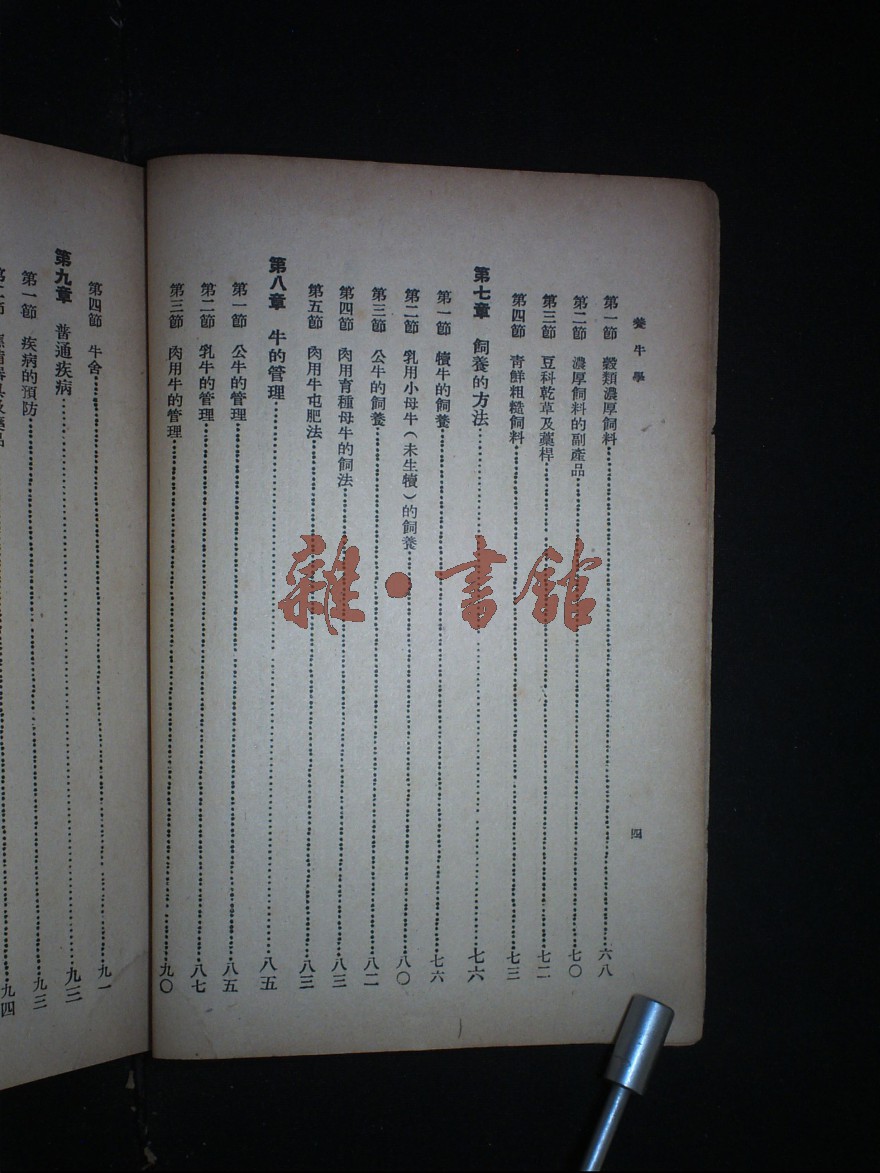 養牛學
四
第一節 穀類濃厚飼料 六八
第二節 濃厚飼料的副產品 七〇
第三節 豆科乾草及藁桿 七二
第四節 青鮮粗糙飼料 七三
第七章 飼養的方法 七六
第一節 犢牛的飼養 七六
第二節 乳用小母牛(未生犢)的飼養 八〇
第三節 公牛的飼養 八二
第四節 肉用育種母牛的飼法 八三
第五節 肉用牛屯肥法 八三
第八章 牛的管理 八五
第一節 公牛的管理 八五
第二節 乳牛的管理 八七
第三節 肉用牛的管理 九〇
第四節 牛舍 九一
第九章 普通疾病 九三
第一節 疾病的預防 九三
九四
雜·書館